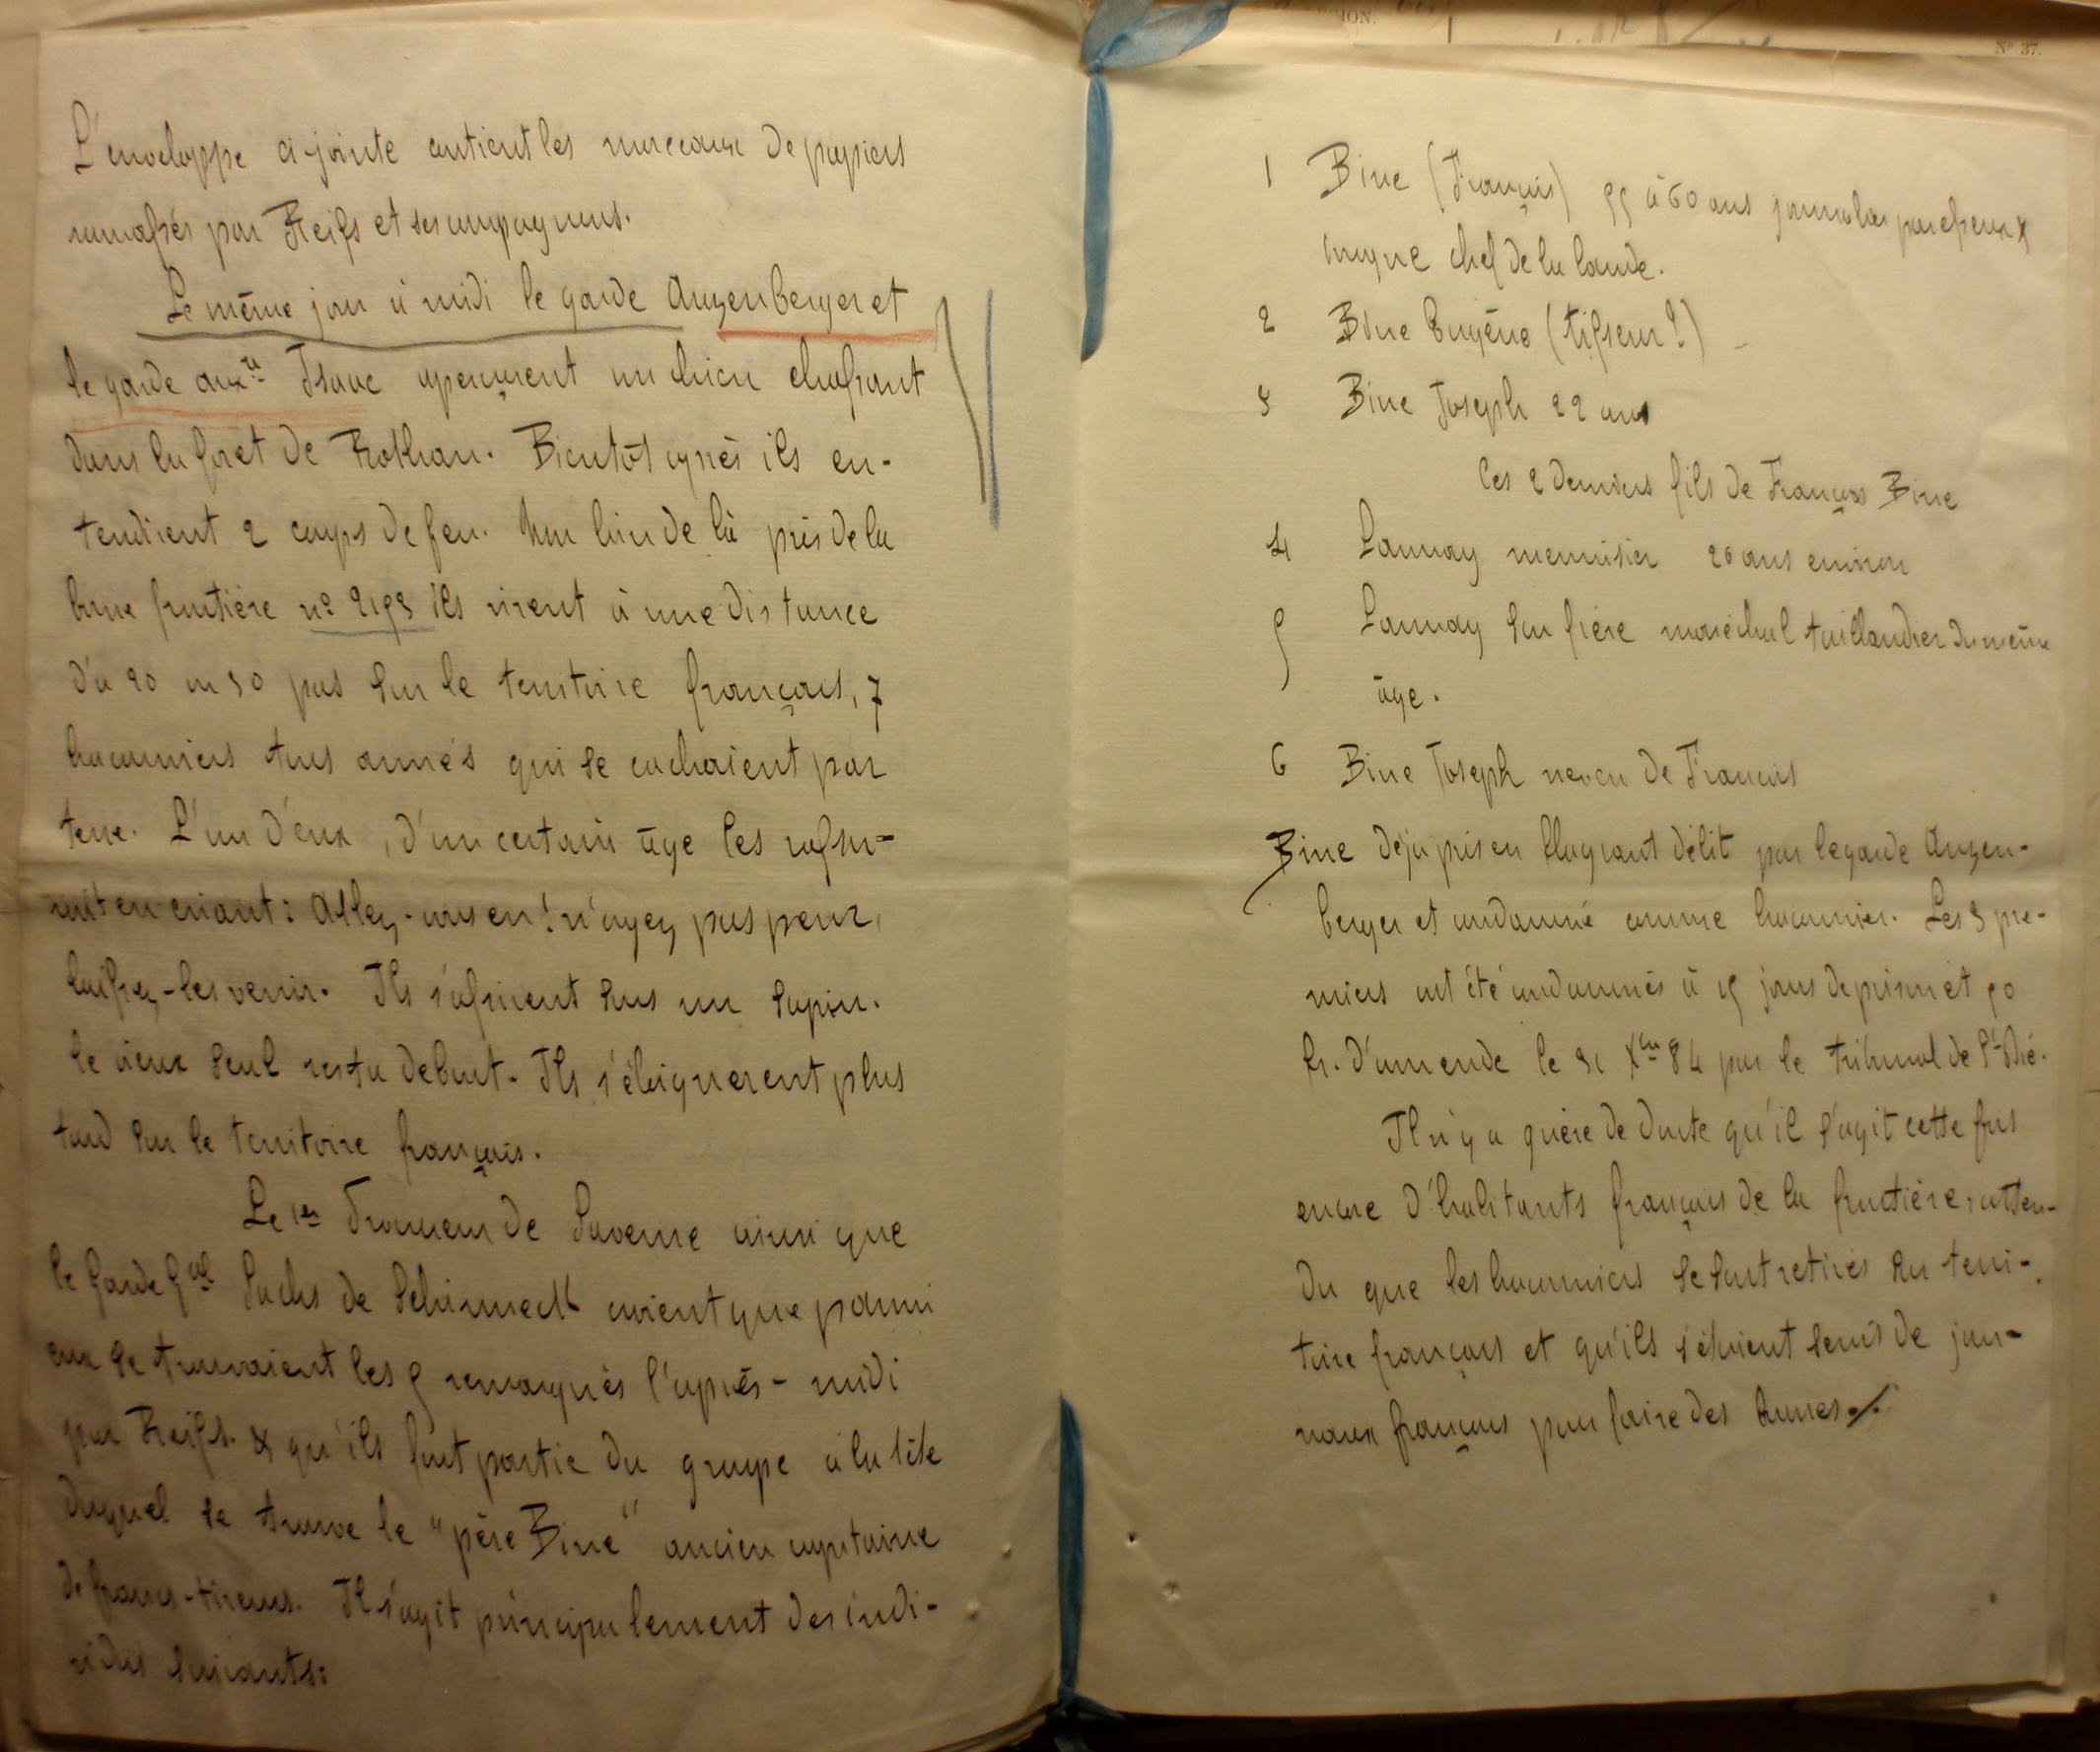 L'enveloppe ci-jointe contient les morceaux de papiers
ramassés par Reifs et ses compagnons.
Le même jour à midi le garde Anzenberger et
le garde auxre Isaac aperçurent un chien chassant
dans la foret de Rothau. Bientôt après ils en-
tendirent 2 coups de feu. Non loin de là près de la
borne frontière no 2193 ils virent à une distance
d'à 20 ou 30 pas sur le territoire français, 7
braconniers tous armés qui se cachaient par
terre. L'un d'eux, d'un certain âge les rassu-
rait en criant: Allez-vous en! n'ayez pas peur,
laissez-les venir. Ils s'assirent sous un sapin.
le vieux seul resta debout. Ils s'éloignerent plus
tard sur le territoire français.
Le 1er Procureur de Saverne ainsi que
le Garde Gal Sachs de Schirmeck croient que parmi
eux se trouvaient les 5 remarqués l'après-midi
par Reifs. & qu'ils font partie du groupe à la tête
duquel se trouve le "père Bine" ancien capitaine
de francs-tireurs. Il s'agit principalement des indi-
vidus suivants:
ION.
No 37.
1 Bine (François) 55 à 60 ans journalier paresseux &
ivrogne chef de la bande.
2 Bine Eugène (tisseur?)
3 Bine Joseph 22 ans
Ces 2 derniers fils de François Bine
4 Launay menuisier 26 ans environ
5 Launay son frère maréchal taillandier du même
âge.
6 Bine Joseph neveu de François
Bine déjà pris en flagrant délit par le garde Anzen-
berger et condamné comme braconnier. Les 3 pre-
miers ont été condamnés à 15 jours de prison et 50
fr. d'amende le 31 Xbre 84 par le tribunal de St-Dié.
Il n'y a guère de doute qu'il s'agit cette fois
encore d'habitants français de la frontière, atten-
du que les braconniers se sont retirés sur terri-
toire français et qu'ils s'étaient servis de jour-
naux français pour faire des bourres ./.